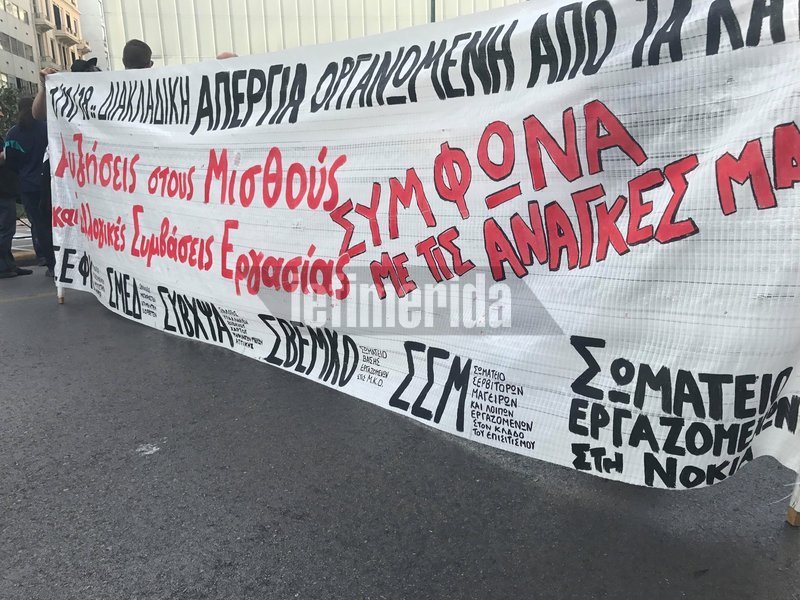 7/11/18 :: ΔΙΑΚΛΑΔΙΚΗ ΑΠΕΡΓΙΑ ΟΡΓΑΝΩΜΕΝΗ ΑΠΟ ΤΑ
Αυξήσεις στους Μισθούς
και Συλλογικές Συμβάσεις Εργασίας
ΣΥΜΦΩΝΑ
ΜΕ ΤΙΣ ΑΝΑΓΚΕΣ ΜΑ
iefimerida
ΣΜΕΔ
ΣΥΒΧΨΑ
ΣΒΕΜΚΟ
ΣΩΜΑΤΕΙΟ
ΒΑΣΗΣ
ΕΡΓΑΖΟΜΕΝΩΝ
ΣΤΙΣ Μ.Κ.Ο.
ΣΣΜ
ΣΩΜΑΤΕΙΟ
ΣΕΡΒΙΤΟΡΩΝ
ΜΑΓΕΙΡΩΝ
ΚΑΙ ΛΟΙΠΩΝ
ΕΡΓΑΖΟΜΕΝΩΝ
ΣΤΟΝ ΚΛΑΔΟ
ΤΟΥ ΕΠΙΣΙΤΙΣΜΟΥ
ΣΩΜΑΤΕΙΟ
ΕΡΓΑΖΟΜΕΝΩΝ
ΣΤΗ ΝΟΚΙΑ